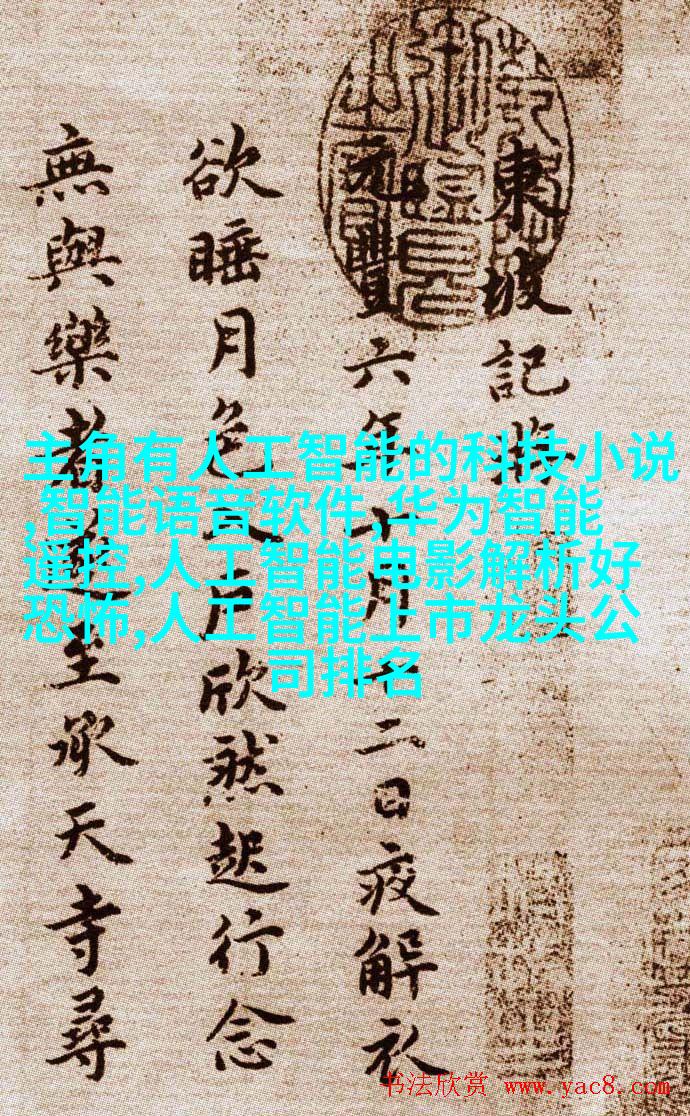 東坡記
元豐六年十月十二日疲解衣
欲睡月色入戶欣然起行念
無與樂者遂至承天寺尋
主角有人工智能的科技小说
,智能语音软件,华为智能
遥控,人工智能电影解析好
恐怖,人工智能上市龙头公
司排名
书法欣赏 www.yac8.com